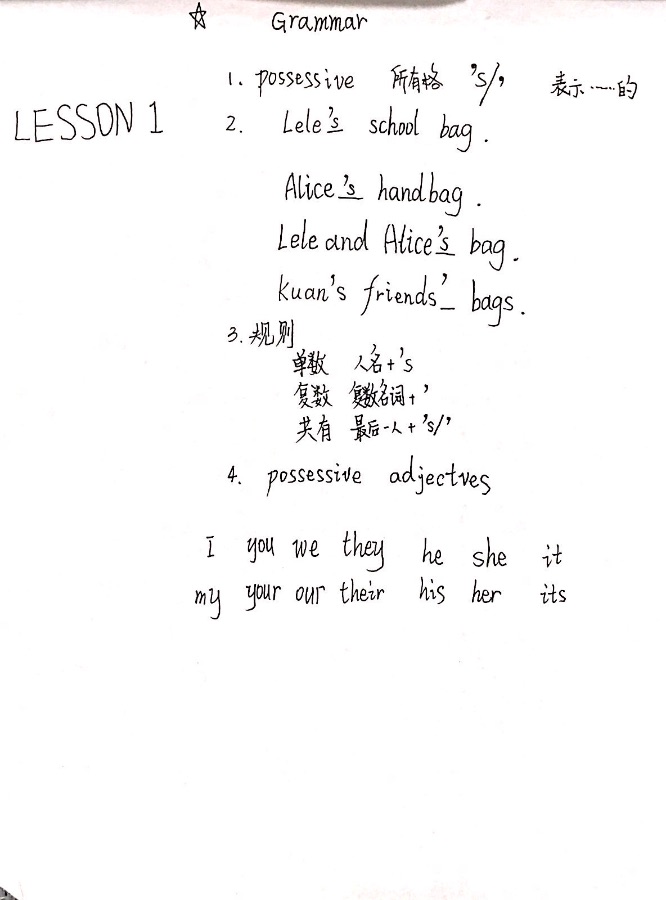 ☆ Grammar
1. possessive 所有格 's/' 表示……的
LESSON 1
2. Lele's school bag.
Alice's handbag.
Lele and Alice's bag.
Kuan's friends' bags.
3. 规则
单数 人名+'s
复数 复数名词+'
共有 最后一人+'s/'
4. possessive adjectves
I you we they he she it
my your our their his her its